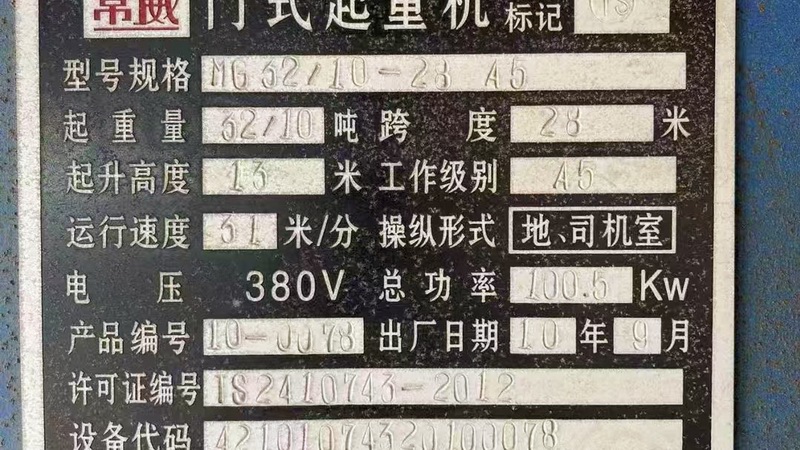 常威 门式起重机 标记 TS
型号规格 MG32/10-28 A5
起重量 32/10 吨 跨度 28 米
起升高度 13 米 工作级别 A5
运行速度 31 米/分 操纵形式 地、司机室
电压 380V 总功率 100.5 Kw
产品编号 10-0078 出厂日期 10 年 9 月
许可证编号 TS2410743-2012
设备代码 42101074320100078